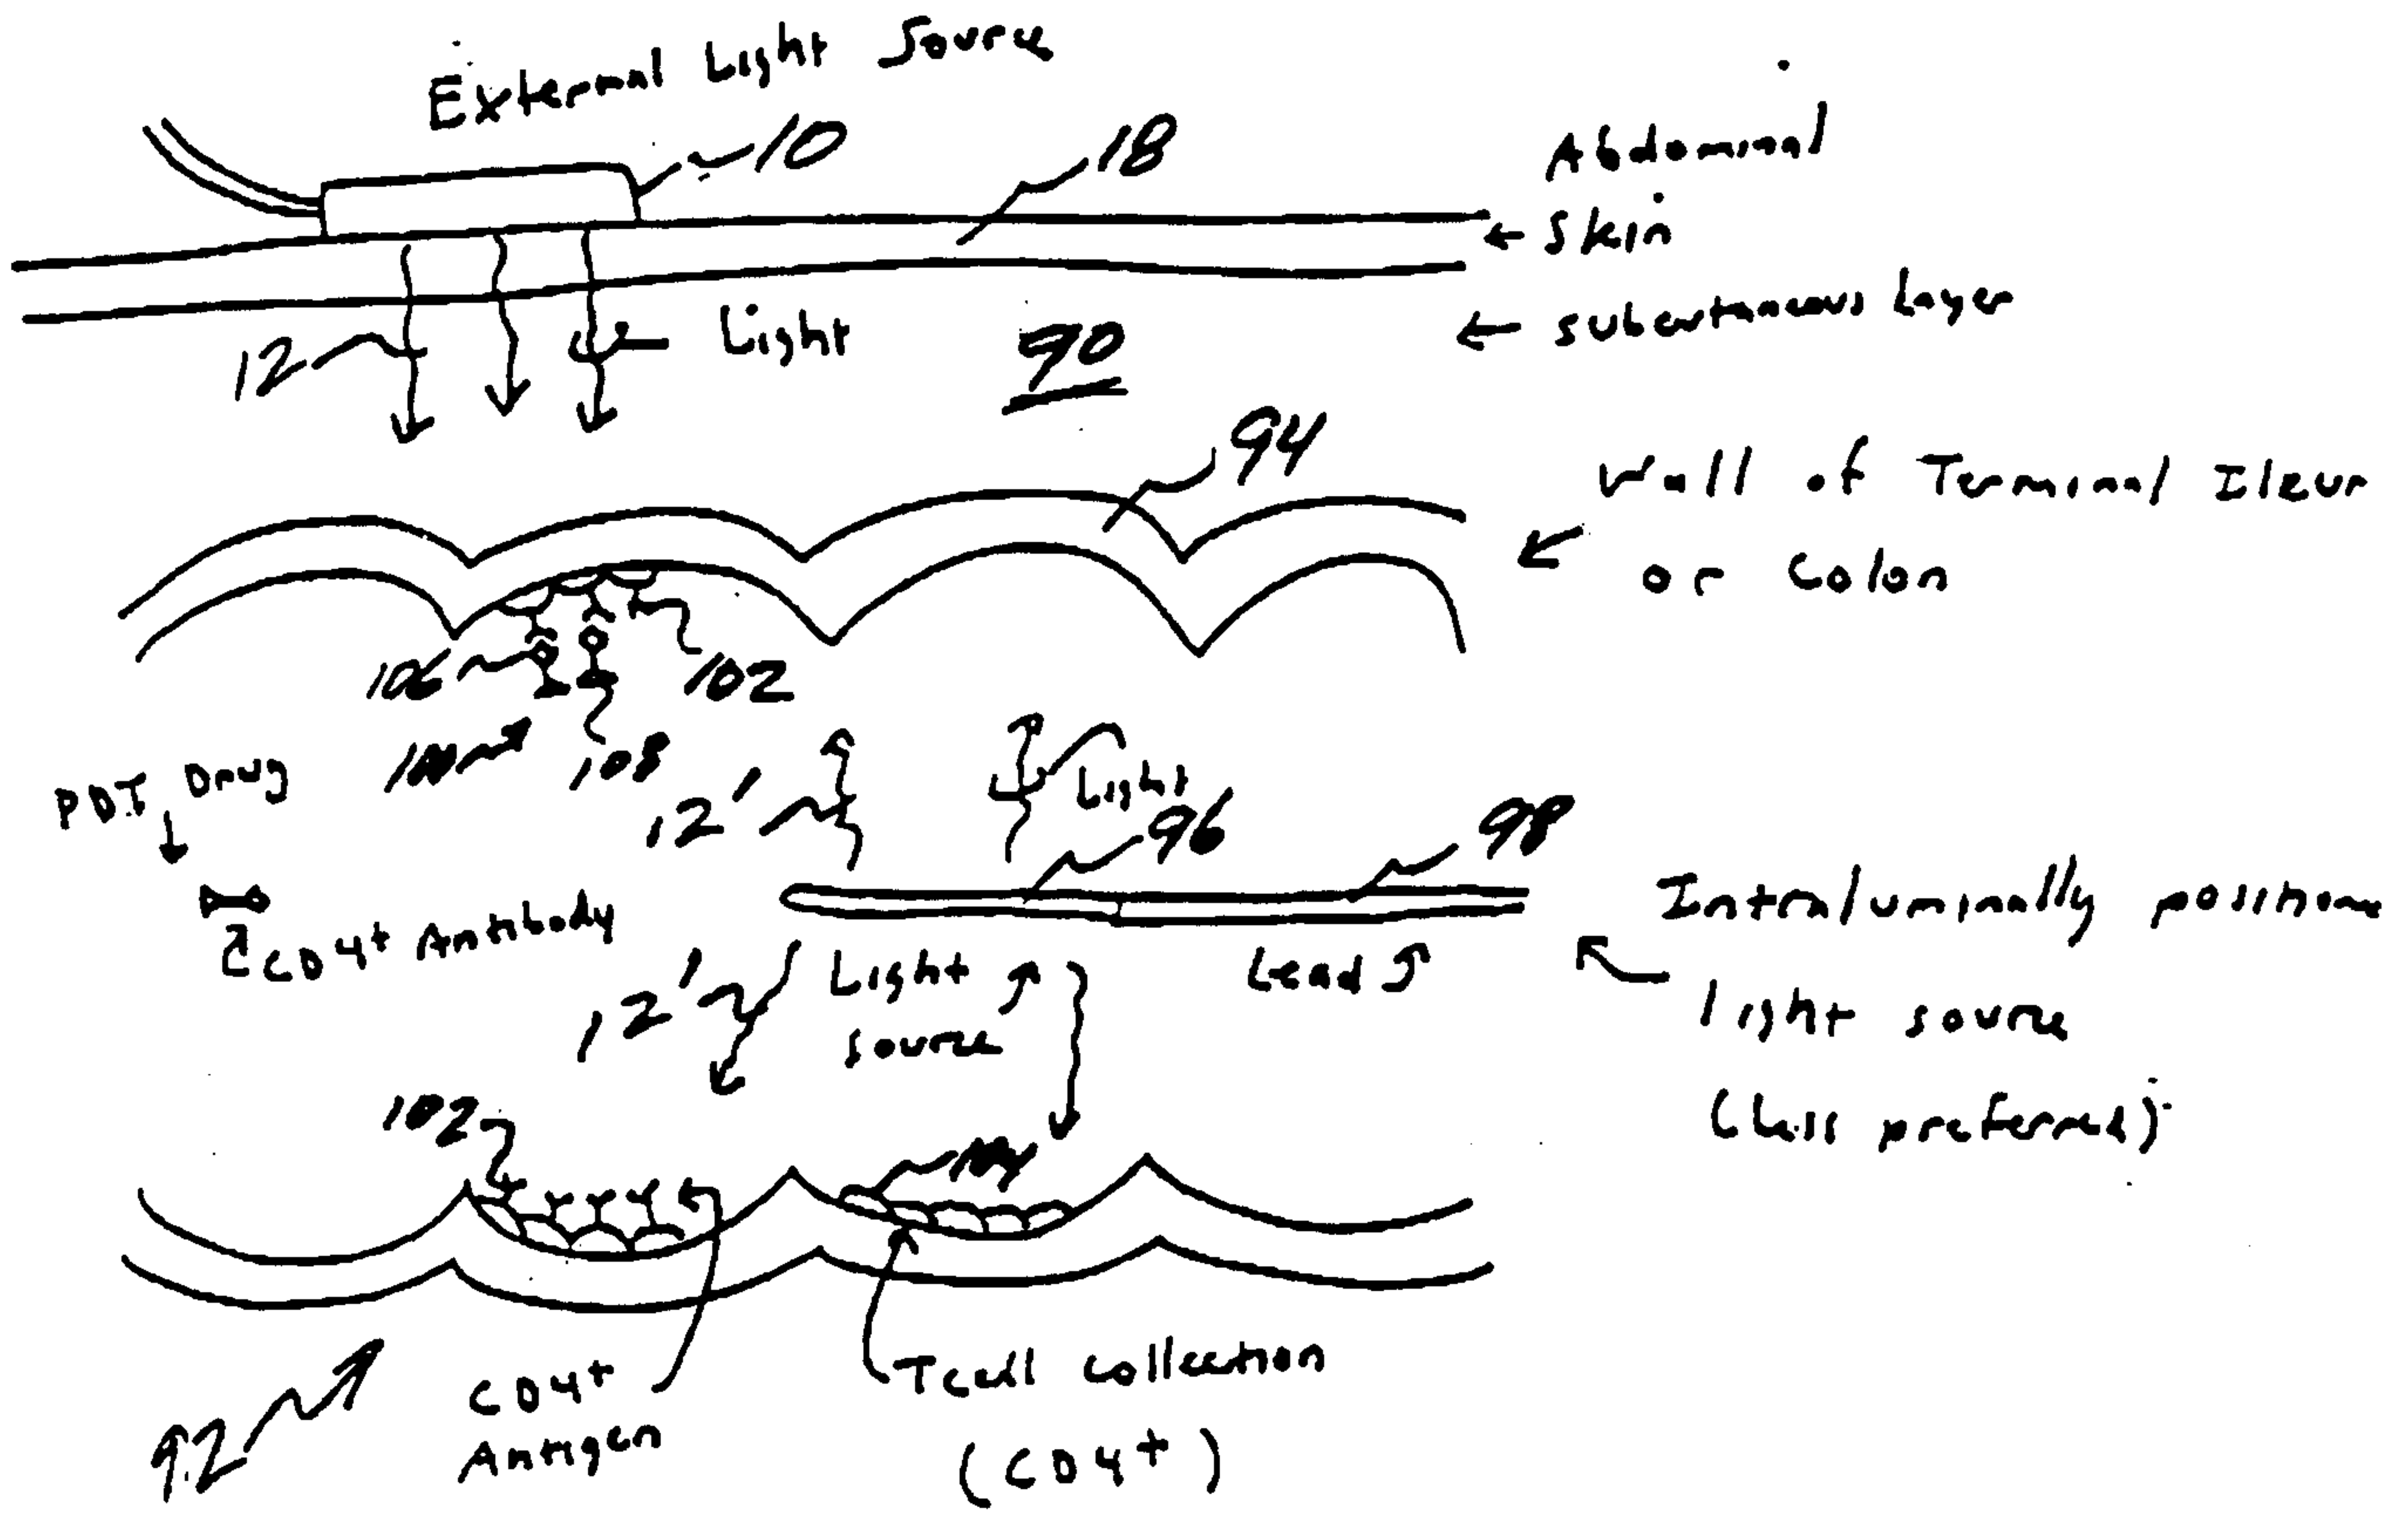 External Light Source
10
18
Abdominal
← Skin
← subcutaneous Layer
12
← Light
90
94
Wall of Terminal Ileum
or Colon
106
102
108
PDT Drug
12'
Light
96
98
CD4+ Antibody
Intraluminally
12'
Light
source
Lead
light source
(Less preferred)
102
104
92
CD4+
Antigen
Tcell collection
(CD4+)